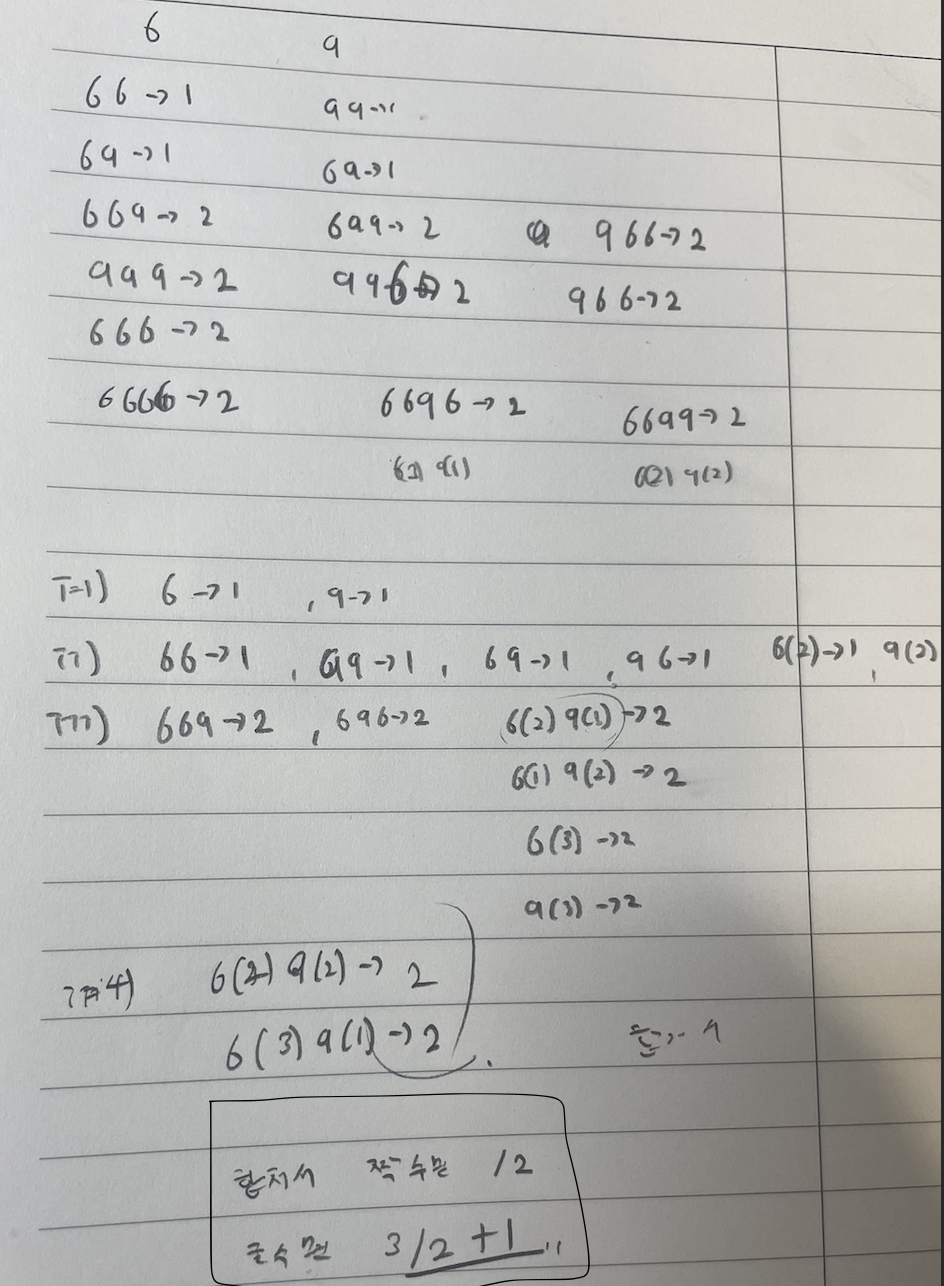 6 9
66→1 99→1
69→1 69→1
669→2 699→2 966→2
999→2 996→2 966→2
666→2
6666→2 6696→2 6699→2
9(1) 6(2) 9(2)
i=1) 6→1 , 9→1
66→1 , 99→1 , 69→1 , 96→1 6(2)→1 , 9(2)
669→2 , 696→2 6(2) 9(1)→2
6(1) 9(2)→2
6(3)→2
9(3)→2
4) 6(2) 9(2)→2
6(3) 9(1)→2
합쳐서 짝수면 /2
홀수면 3/2+1